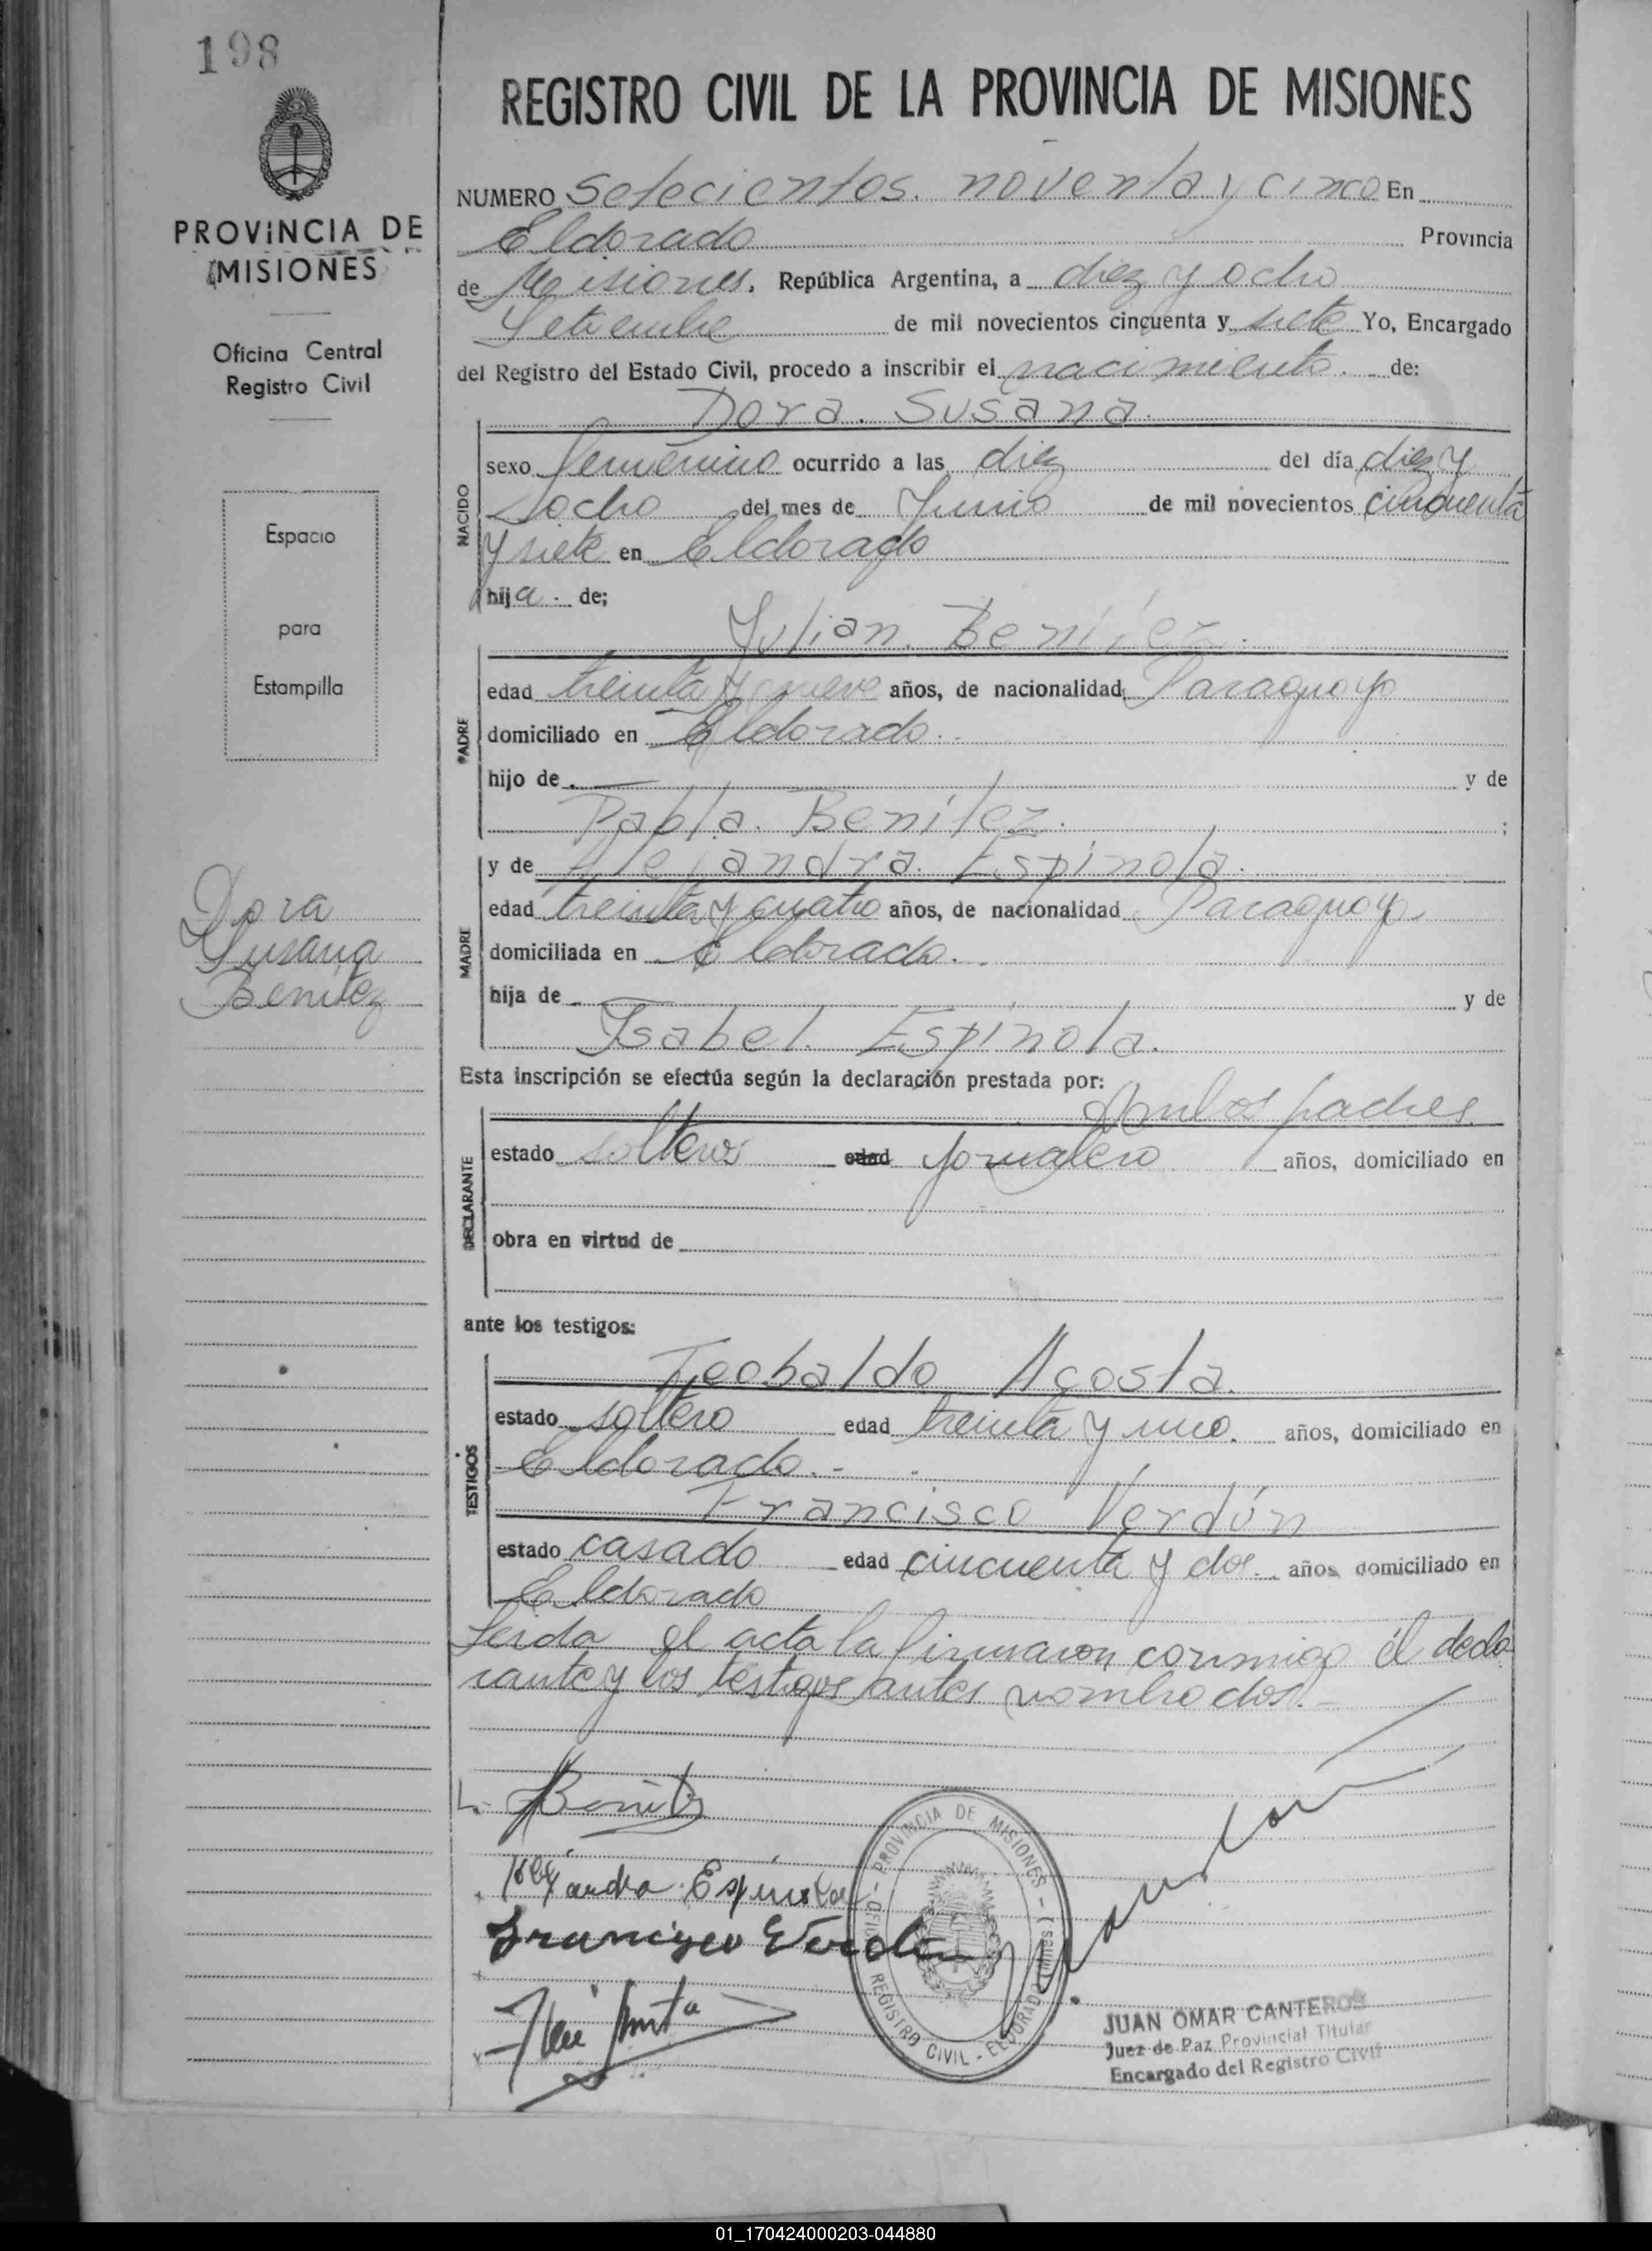 198
PROVINCIA DE
MISIONES
Oficina Central
Registro Civil
Espacio
para
Estampilla
Dora
Susana
Benitez
REGISTRO CIVIL DE LA PROVINCIA DE MISIONES
NUMERO Setecientos. noventa y cinco En
Eldorado Provincia
de Misiones. República Argentina, a diez y ocho
Setiembre de mil novecientos cincuenta y siete Yo, Encargado
del Registro del Estado Civil, procedo a inscribir el nacimiento. de:
Dora. Susana.
NACIDO
sexo femenino ocurrido a las diez del día diez y
ocho del mes de Junio de mil novecientos cincuenta
y siete en Eldorado
hija. de;
Julian. Benitez.
PADRE
edad treinta y nueve años, de nacionalidad Paraguayo
domiciliado en Eldorado.
hijo de y de
Pabla. Benítez. ;
y de Alejandra. Espinola.
MADRE
edad treinta y cuatro años, de nacionalidad Paraguaya
domiciliada en Eldorado.
hija de y de
Isabel. Espínola.
Esta inscripción se efectúa según la declaración prestada por:
Ambos padres.
DECLARANTE
estado solteros edad jornalero años, domiciliado en
obra en virtud de
ante los testigos:
Teobaldo Acosta.
TESTIGOS
estado soltero edad treinta y uno. años, domiciliado en
Eldorado.-
Francisco Verdún
estado casado edad cincuenta y dos. años domiciliado en
Eldorado
Leida el acta la firmaron conmigo él decla
rante y los testigos antes nombrados.-
Benitez
Alejandra Espinola
Francisco Verdun
PROVINCIA DE MISIONES
REGISTRO CIVIL - ELDORADO (Misiones)
JUAN OMAR CANTEROS
Juez de Paz Provincial Titular
Encargado del Registro Civil
01_170424000203-044880